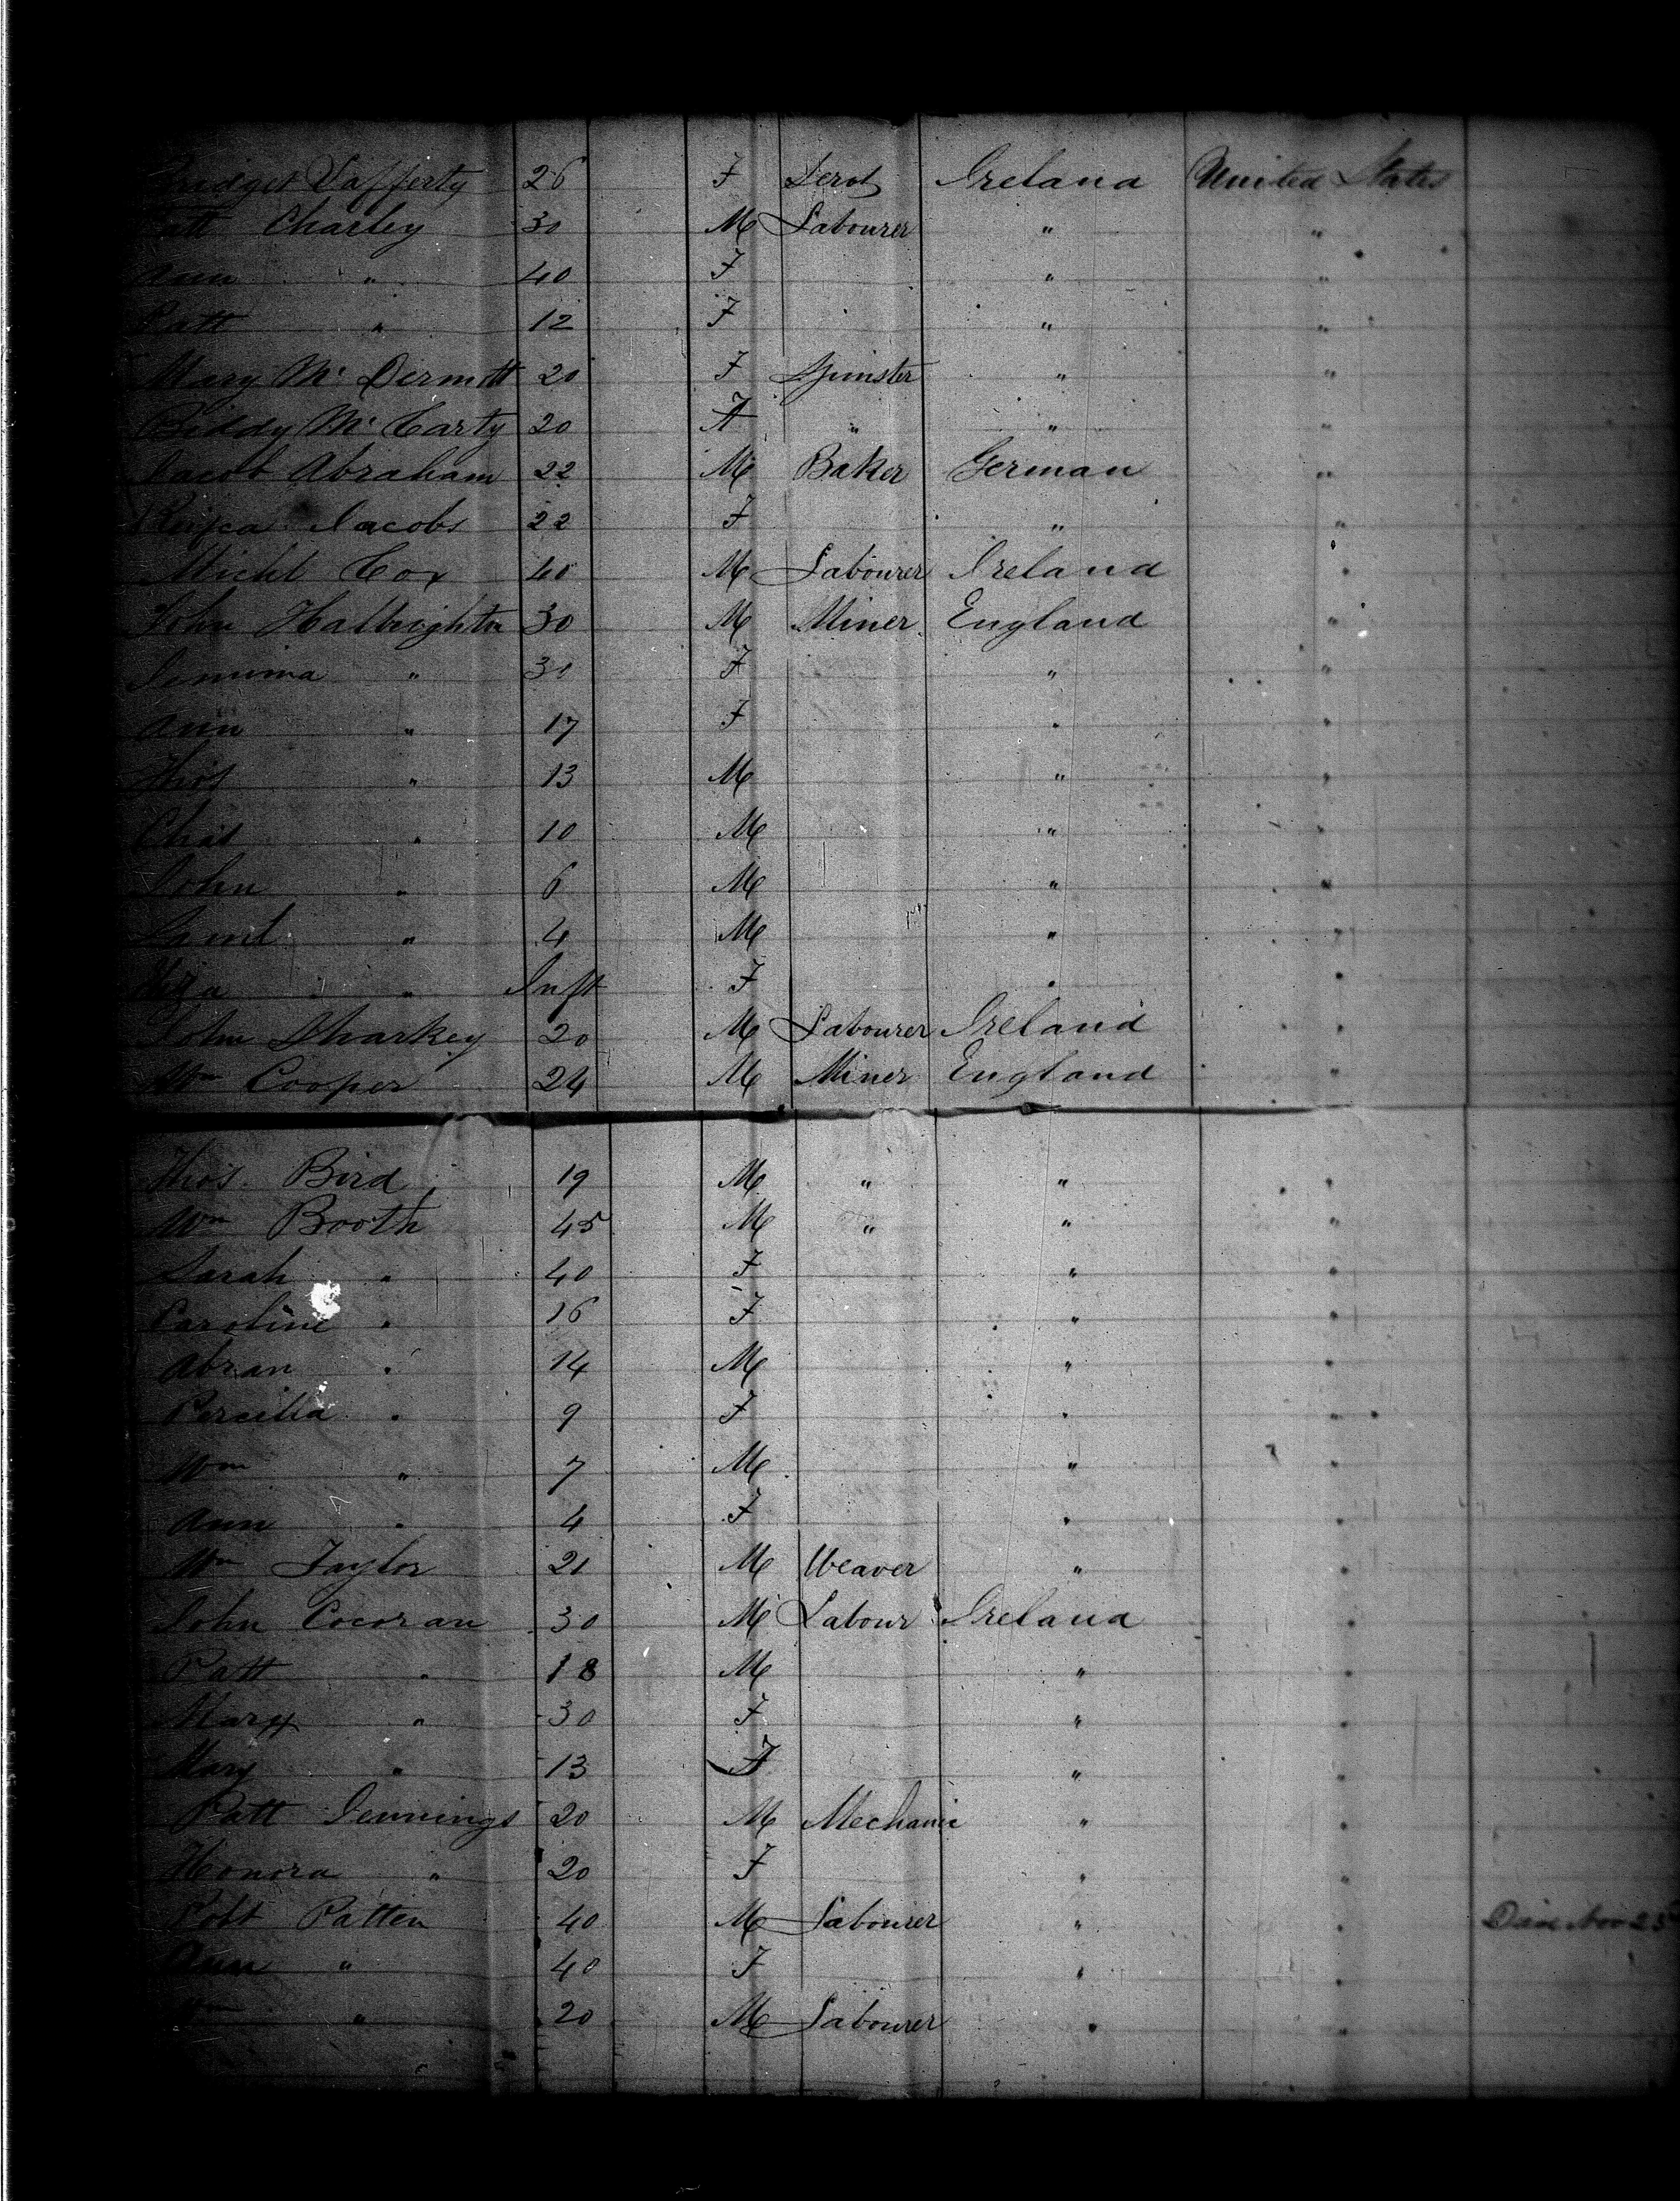 Bridget Lafferty 26 F Servt Ireland United States
Patt Charley 30 M Labourer " "
Ann " 40 F " "
Patt " 12 F " "
Mary Mc Dermott 20 F Spinster " "
Biddy Mc Carty 20 F " " "
Jacob Abraham 22 M Baker German "
Jacobs 22 F " "
Michl Cox 40 M Labourer Ireland "
John Halbeighton 30 M Miner England "
Jemima " 30 F " "
Ann " 17 F " "
Thos " 13 M " "
Chas " 10 M " "
John " 6 M " "
Saml " 4 M " "
" Inft F " "
John Sharkey 20 M Labourer Ireland "
Wm Cooper 24 M Miner England "
Thos. Bird 19 M " " "
Wm Booth 45 M " " "
Sarah " 40 F " "
Caroline " 16 F " "
Abran " 14 M " "
Percilia " 9 F " "
Wm " 7 M " "
Ann " 4 F " "
Wm Taylor 21 M Weaver " "
John Cocoran 30 M Labour Ireland "
Patt " 18 M " "
Mary " 30 F " "
Mary " 13 F " "
Patt Jennings 20 M Mechanic " "
Honora " 20 F " "
Robt Patten 40 M Labourer " " Died Nov 25
Ann " 40 F " "
Wm " 20 M Labourer " "